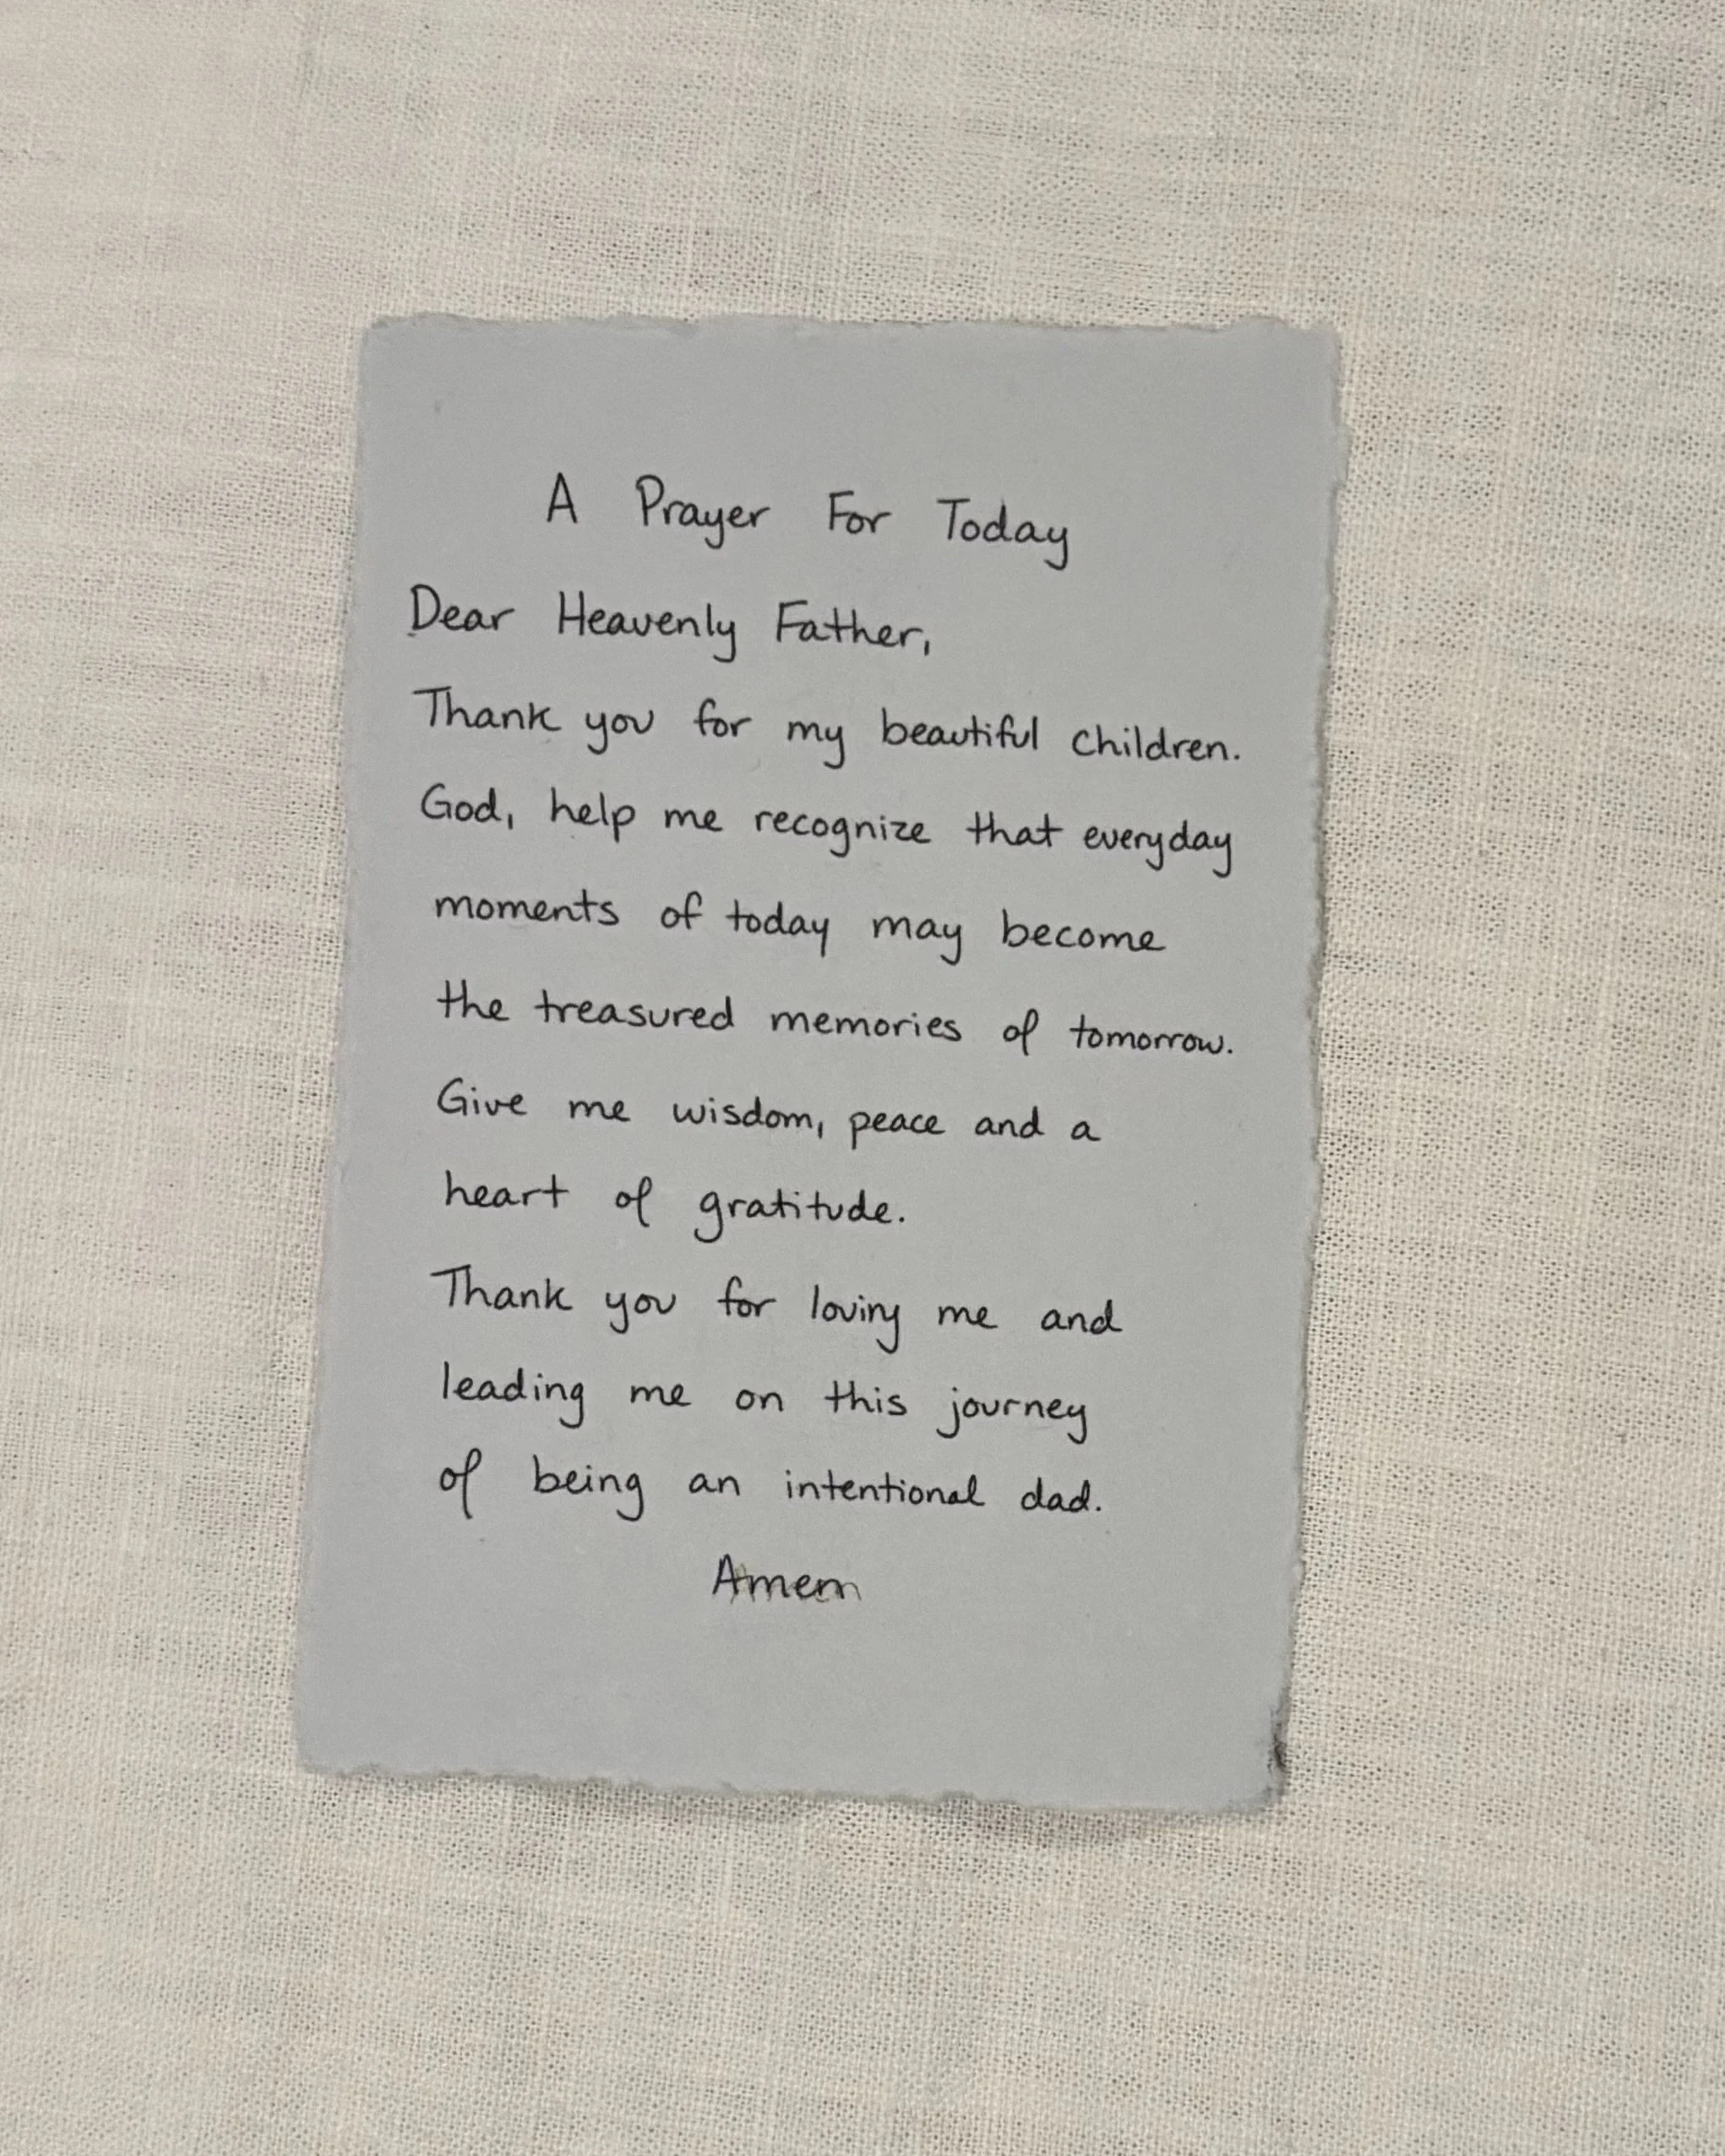 A Prayer For Today
Dear Heavenly Father,
Thank you for my beautiful children.
God, help me recognize that everyday
moments of today may become
the treasured memories of tomorrow.
Give me wisdom, peace and a
heart of gratitude.
Thank you for loving me and
leading me on this journey
of being an intentional dad.
Amen